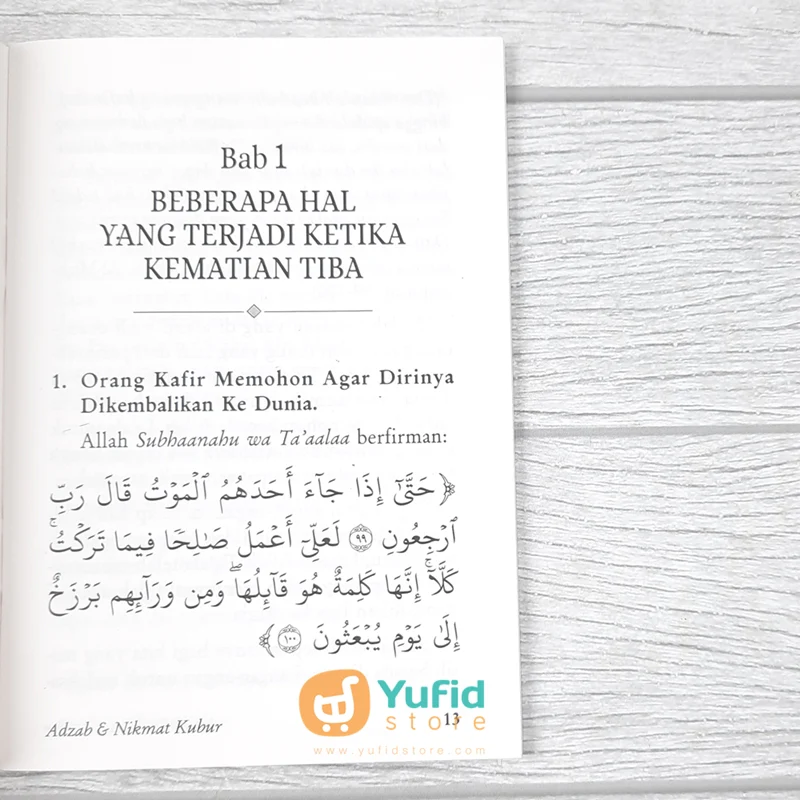 Bab 1
BEBERAPA HAL
YANG TERJADI KETIKA
KEMATIAN TIBA
1. Orang Kafir Memohon Agar Dirinya
Dikembalikan Ke Dunia.
Allah Subhaanahu wa Ta'aalaa berfirman:
﴿ حَتَّىٰٓ إِذَا جَآءَ أَحَدَهُمُ ٱلۡمَوۡتُ قَالَ رَبِّ
ٱرۡجِعُونِ ٩٩ لَعَلِّيٓ أَعۡمَلُ صَٰلِحٗا فِيمَا تَرَكۡتُۚ
كَلَّآۚ إِنَّهَا كَلِمَةٌ هُوَ قَآئِلُهَاۖ وَمِن وَرَآئِهِم بَرۡزَخٌ
إِلَىٰ يَوۡمِ يُبۡعَثُونَ ١٠٠ ﴾
Adzab & Nikmat Kubur
13
Yufid
store
www.yufidstore.com